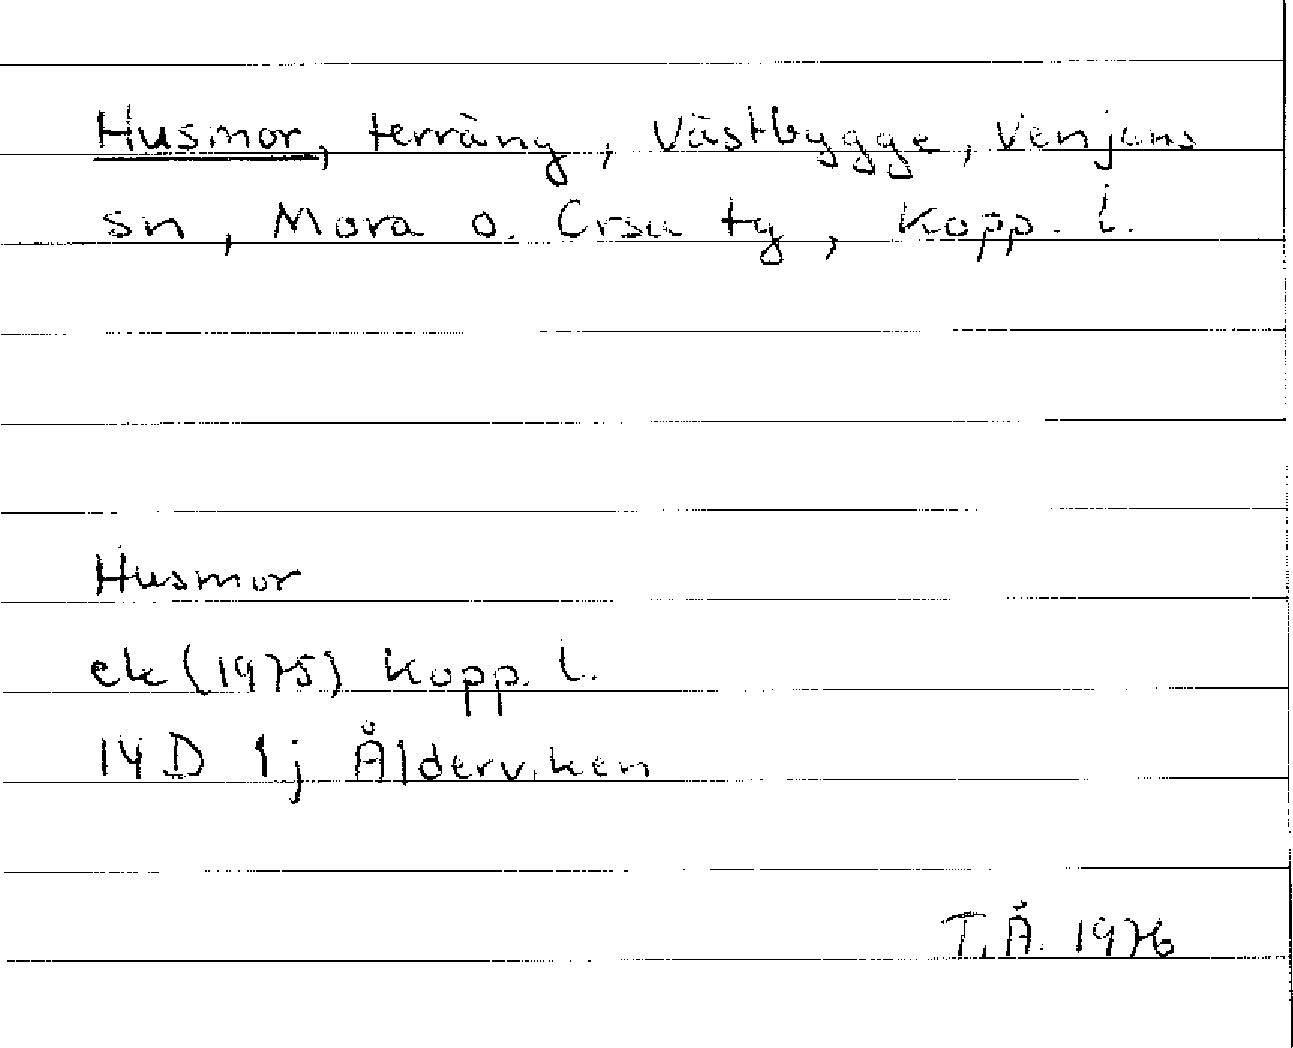 Husmor, terräng, Västbygge, Venjans
sn, Mora o. Orsa tg, Kopp. l.
Husmor
ek (1975) Kopp. l.
14 D 1j Ålderviken
T.Å. 1976